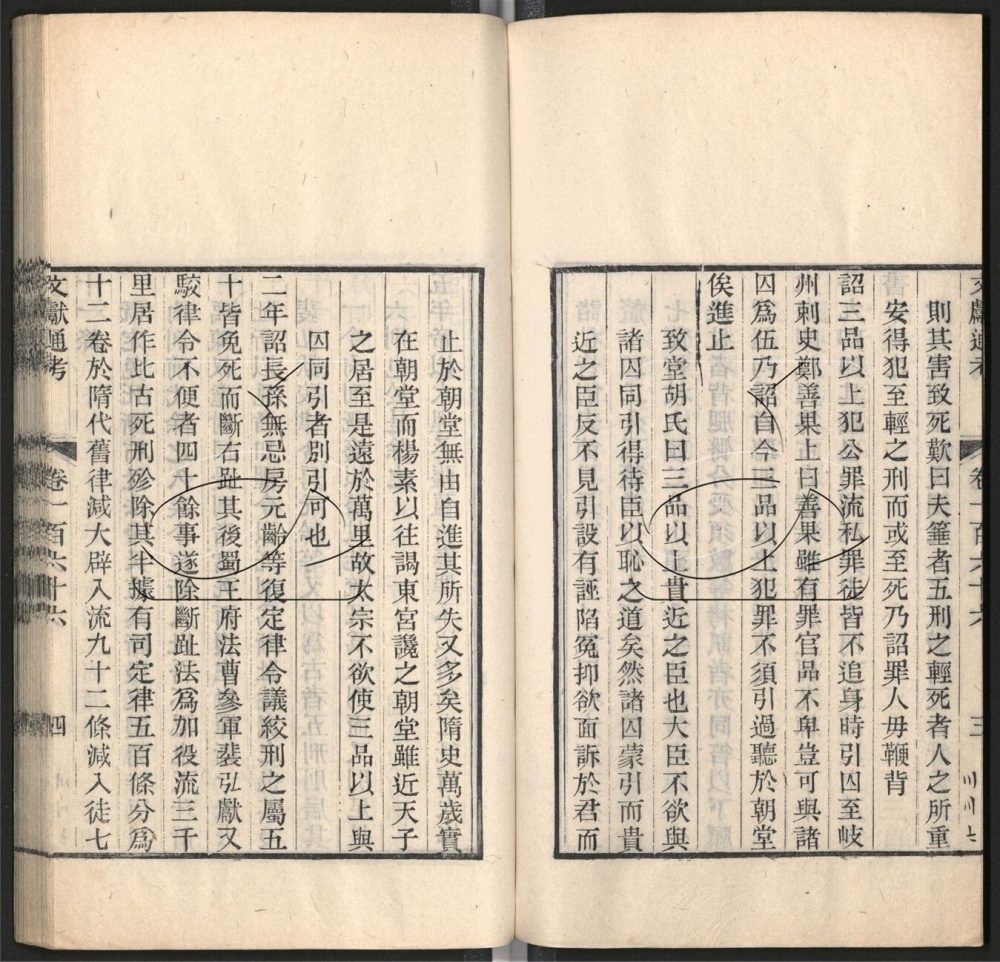 文獻通考 卷一百六十六 三
則其害致死歎曰夫箠者五刑之輕死者人之所重
安得犯至輕之刑而或至死乃詔罪人毋鞭背
詔三品以上犯公罪流私罪徒皆不追身時引囚至岐
州刺史鄭善果上曰善果雖有罪官品不卑豈可與諸
囚爲伍乃詔自今三品以上犯罪不須引過聽於朝堂
俟進止
致堂胡氏曰三品以上貴近之臣也大臣不欲與
諸囚同引得待臣以恥之道矣然諸囚蒙引而貴
近之臣反不見引設有誣陷冤抑欲面訴於君而
止於朝堂無由自進其所失又多矣隋史萬歲實
在朝堂而楊素以往謁東宮讒之朝堂雖近天子
之居至是遠於萬里故太宗不欲使三品以上與
囚同引者別引可也
二年詔長孫無忌房元齡等復定律令議絞刑之屬五
十皆免死而斷右趾其後蜀王府法曹參軍裴弘獻又
駮律令不便者四十餘事遂除斷趾法爲加役流三千
里居作此古死刑殄除其半據有司定律五百條分爲
十二卷於隋代舊律減大辟入流九十二條減入徒七
文獻通考 卷一百六十六 四